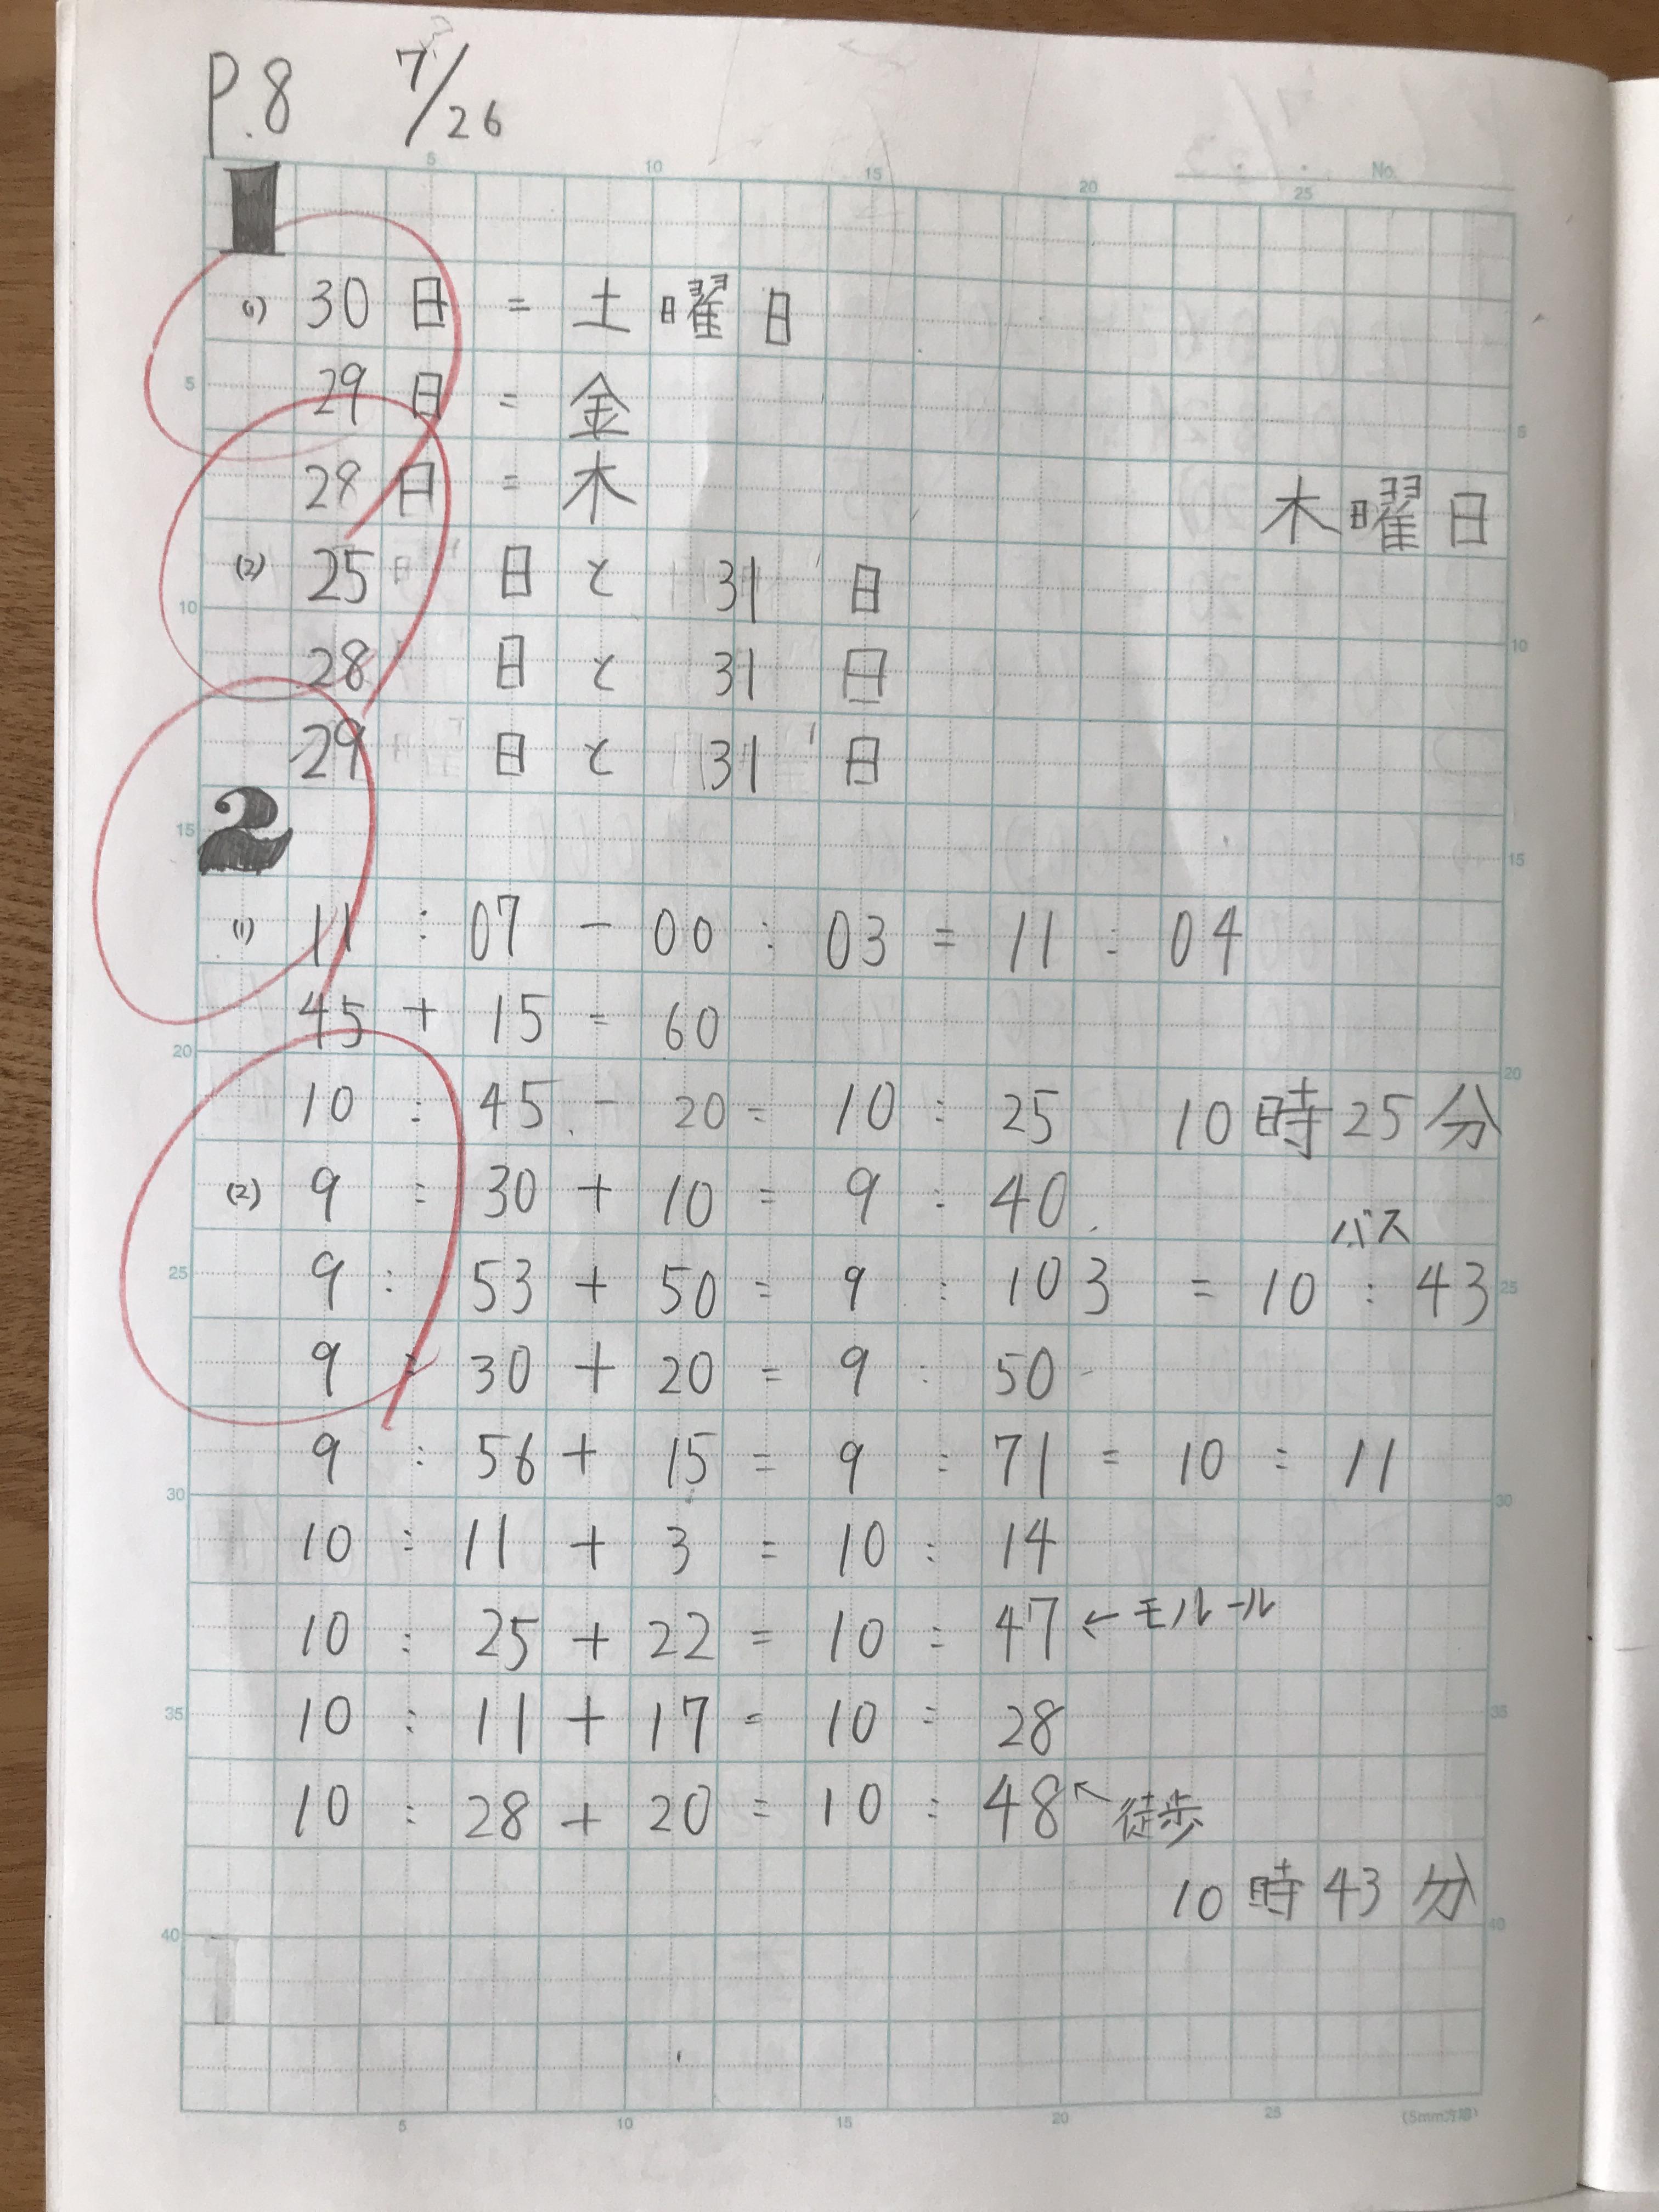 P.8 7/26
No.
1
(1) 30日 = 土曜日
29日 = 金
28日 = 木
木曜日
(2) 25日と31日
28日と31日
29日と31日
2
(1) 11:07 - 00:03 = 11:04
45 + 15 = 60
10:45 - 20 = 10:25 10時25分
(2) 9:30 + 10 = 9:40
バス
9:53 + 50 = 9:103 = 10:43
9:30 + 20 = 9:50
9:56 + 15 = 9:71 = 10:11
10:11 + 3 = 10:14
10:25 + 22 = 10:47 ←モルール
10:11 + 17 = 10:28
10:28 + 20 = 10:48 ←徒歩
10時43分
(5mm方眼)